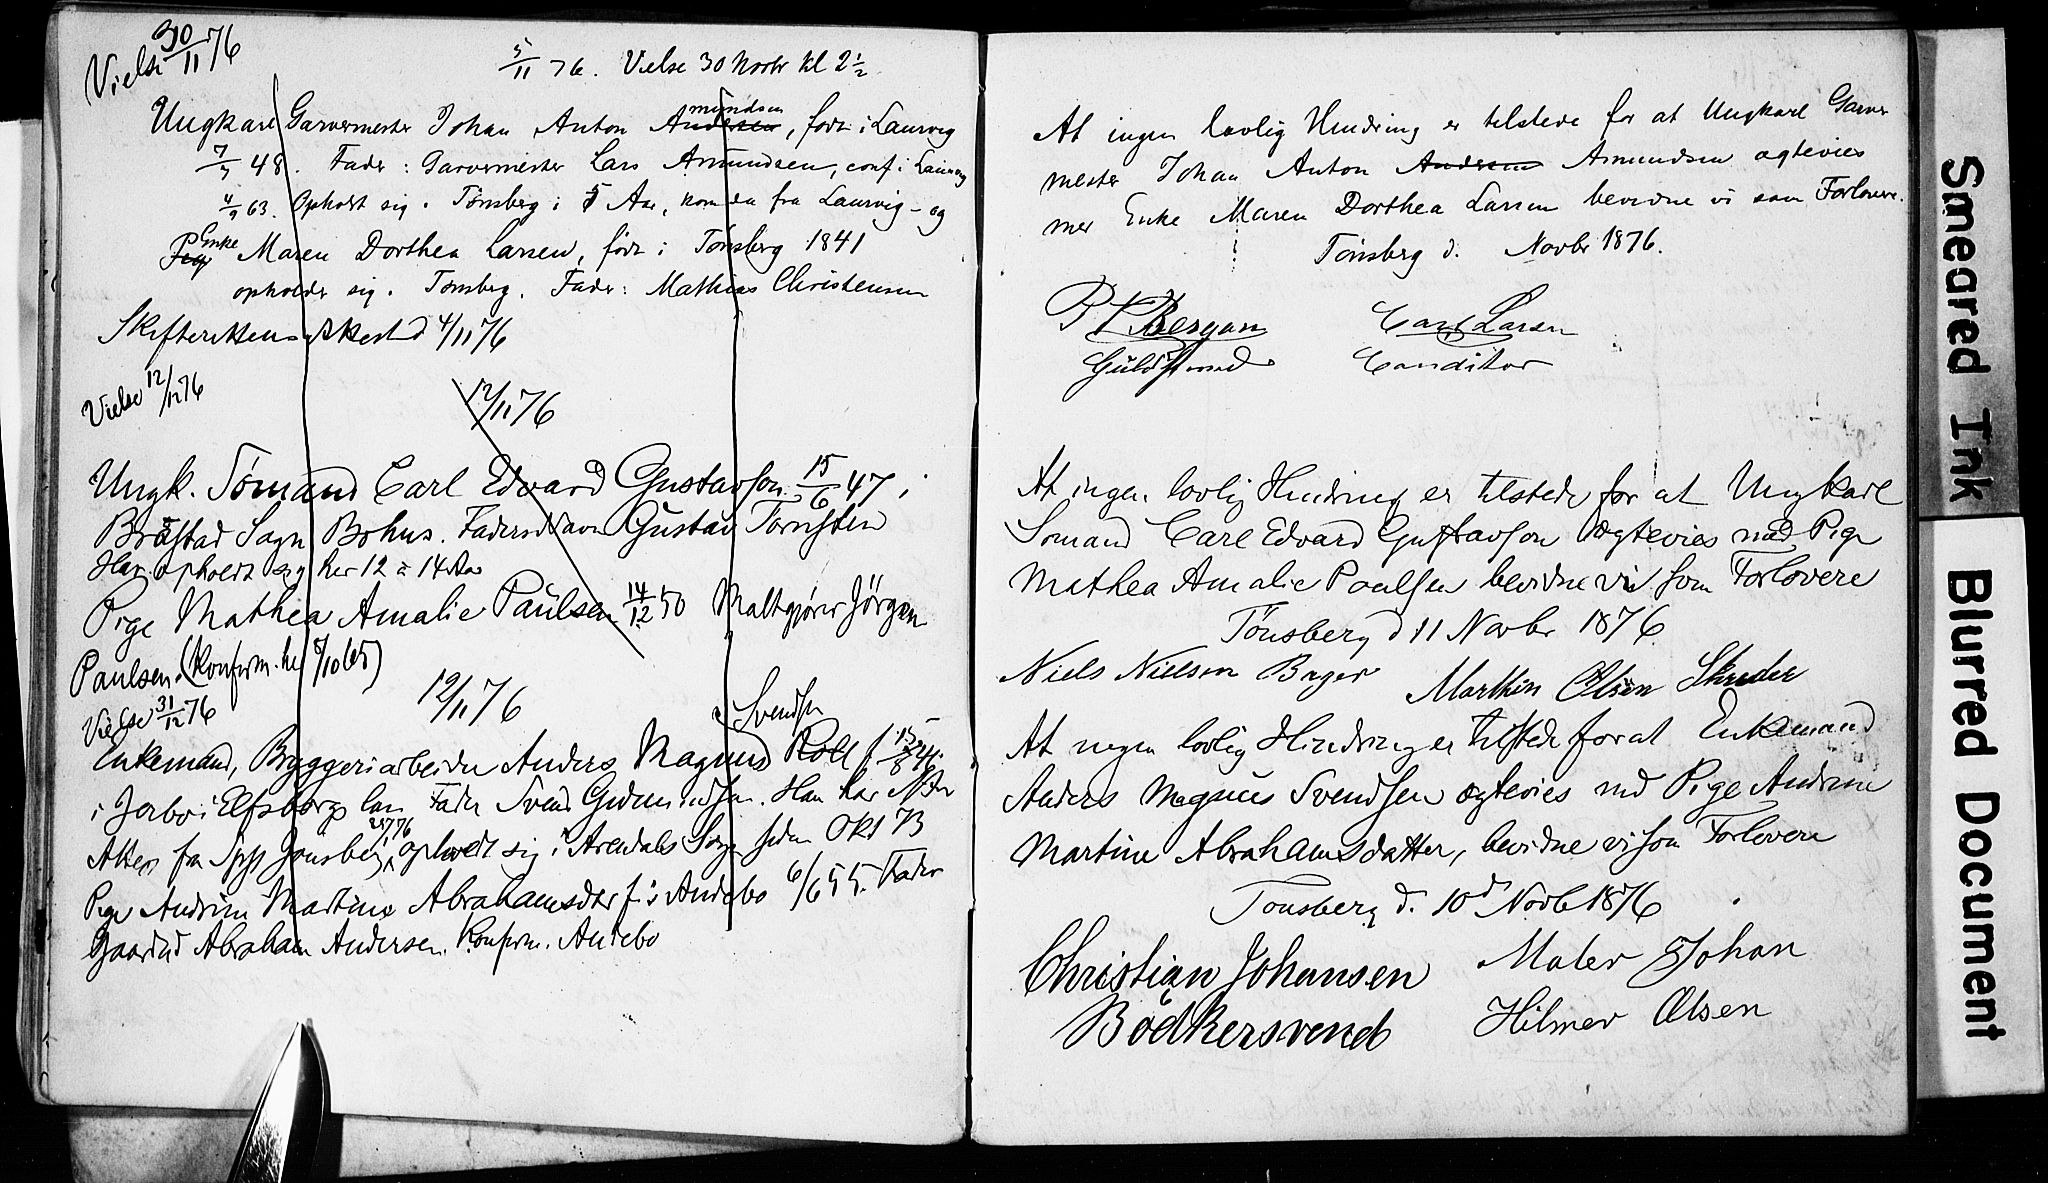 Vielse 30/11 76
5/11 76. Vielse 30 Novbr kl 2 1/2
Ungkarl Garvermester Johan Anton Andersen mundsen, født i Laurvig
48. Fader: Garvermester Lars Amundsen, conf. i Laurvig
63. Opholdt sig i Tønsberg i 5 Aar, kom da fra Laurvig - og
Pige Enke Maren Dorthea Larsen, født i Tønsberg 1841
opholder sig i Tønsberg. Fader: Mathias Christensen
Skifterettens Attest d 4/11 76
Vielse 12/12 76
12/11 76
Ungk. Sømand Carl Edvard Gustavson 15/6 47 i
Brastad Sogn Bohus. Faderens Navn Gustav Torsten
Har opholdt sig her 12 à 14 Aar
Pige Mathea Amalie Paulsen 14/12 50 Maltgjører Jörgen
Paulsen. (Konfirm. her 8/10 65)
Vielse 31/12 76
12/11 76
Svendsen
Enkemand, Bryggeriarbeider Anders Magnus Roll f 15/8
i Jerbo i Elfsborgs län Fader Svend Gudmundsen. Han har
Attest fra Jonsberg, 76 opholdt sig i Arendals Sogn siden Okt 73
Pige Andrine Martine Abrahamsdtr f. i Andebo 6/6 55. Fader
Gaardbd Abraham Andersen. Konfirm. Andebo
At ingen lovlig Hindring er tilstede for at Ungkarl Garver
mester Johan Anton Andersen Amundsen ægtevies
med Enke Maren Dorthea Larsen bevidne vi som Forlovere.
Tønsberg d. Novbr 1876.
P Bergan Carl Larsen
Guldsmed Conditor
At ingen lovlig Hindring er tilstede for at Ungkarl
Sømand Carl Edvard Gustavson ægtevies med Pige
Mathea Amalie Paulsen bevidne vi som Forlovere
Tönsberg d 11 Novbr 1876
Niels Nielsen Bager Marthin Olsen Skræder
At ingen lovlig Hindring er tilstede for at Enkemand
Anders Magnus Svendsen ægtevies med Pige Andrine
Martine Abrahamsdatter, bevidne vi som Forlovere
Tønsberg d. 10d Novb 1876
Christian Johansen Maler Johan
Bødkersvend Hilmer Olsen
Smeared Ink
Blurred Document